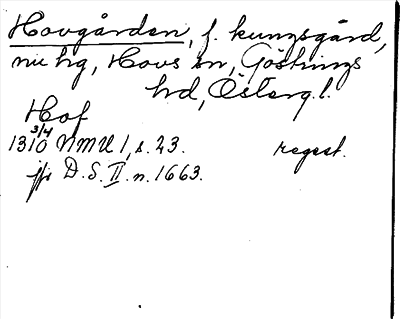 Hovgården, f. kungsgård,
nu hg, Hovs sn, Göstrings
hd, Österg.l.
Hof
1310 3/4 NMU 1, s. 23. regest.
jfr D.S. II. n. 1663.